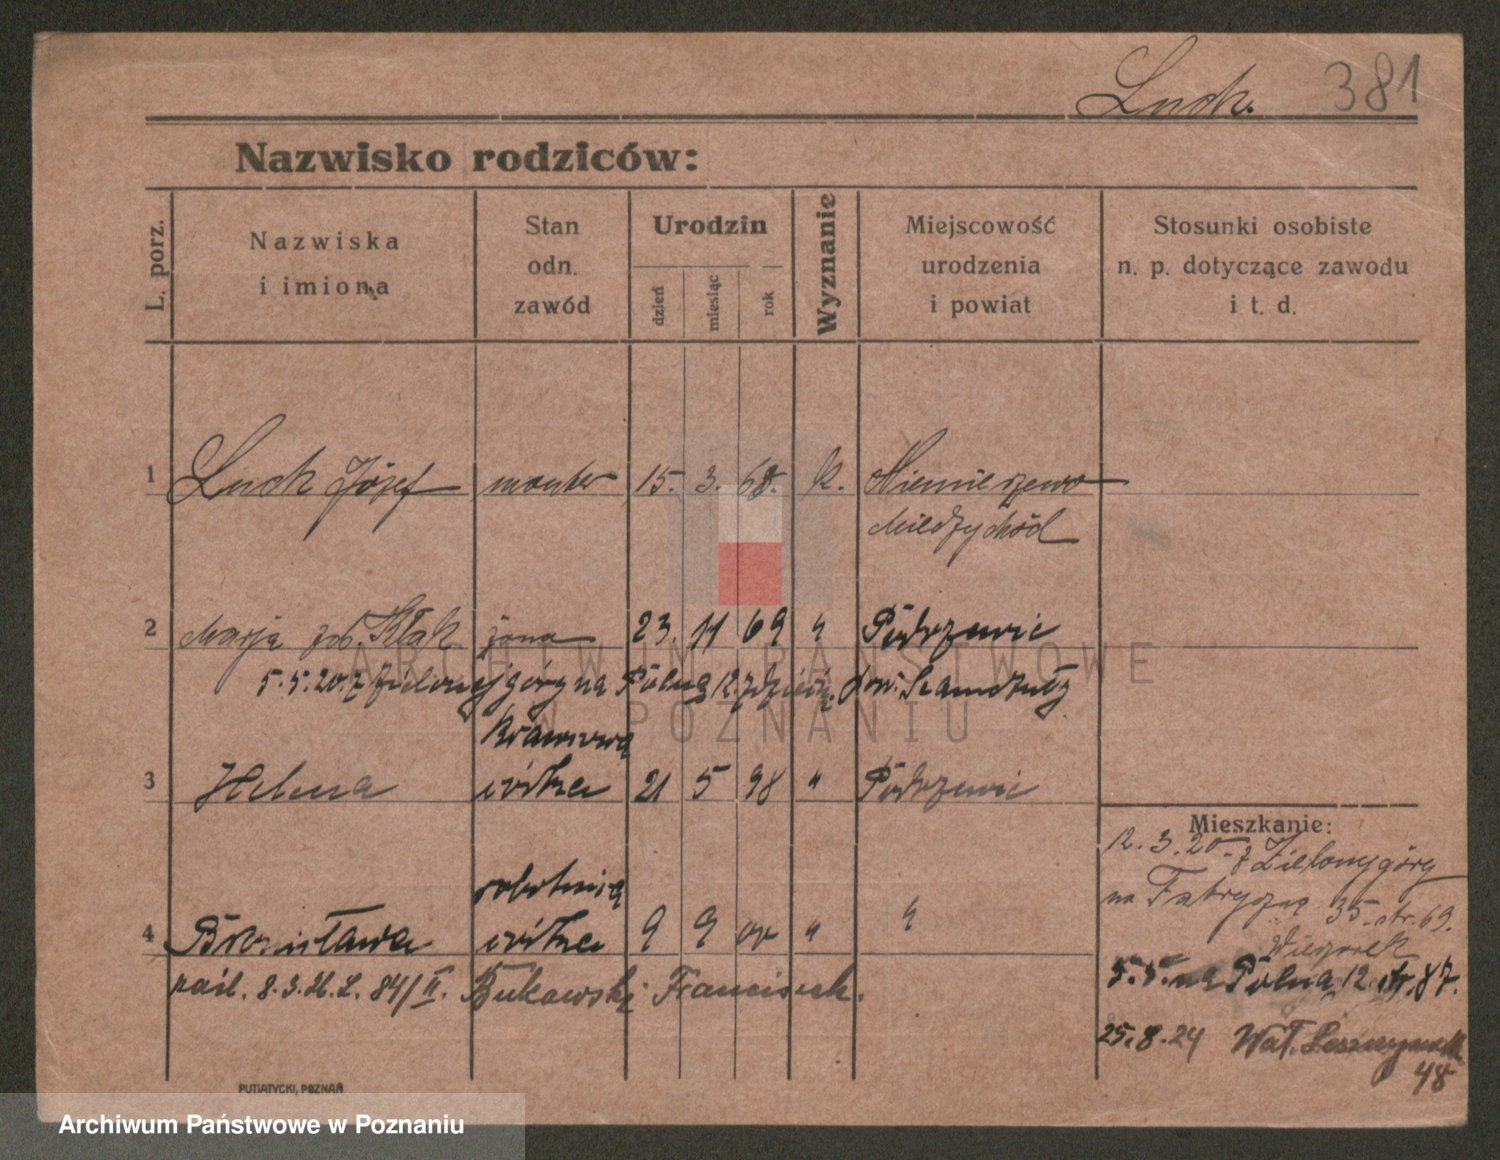 Luck. 381
Nazwisko rodziców:
L. porz.
Nazwiska
i imiona
Stan
odn.
zawód
Urodzin
dzień
miesiąc
rok
Wyznanie
Miejscowość
urodzenia
i powiat
Stosunki osobiste
n. p. dotyczące zawodu
i t. d.
1 Luck Józef monter 15. 3. 68. k. Niemierzewo
Międzychód
2 Marja Kłak żona 23. 11 69 " Podrzewie
5.5.20. z Zielonejgóry na Polną 12. z dziećmi. pow. Szamotuły
3 Helena córka 21 5 98 " Podrzewie
robotnica
4 Bronisława córka 9 9 " "
zaśl. 8.3.26. L. 84/II. Bukowski Franciszek.
Mieszkanie:
12. 3. 20 z Zielonejgóry
na Fabryczną 35. str. 69.
Wieczorek
5.5. na Polną 12. str. 87.
25.8.24 Wał. Leszczyńsk.
48
PUTIATYCKI, POZNAŃ
ARCHIWUM PAŃSTWOWE
W POZNANIU
Archiwum Państwowe w Poznaniu